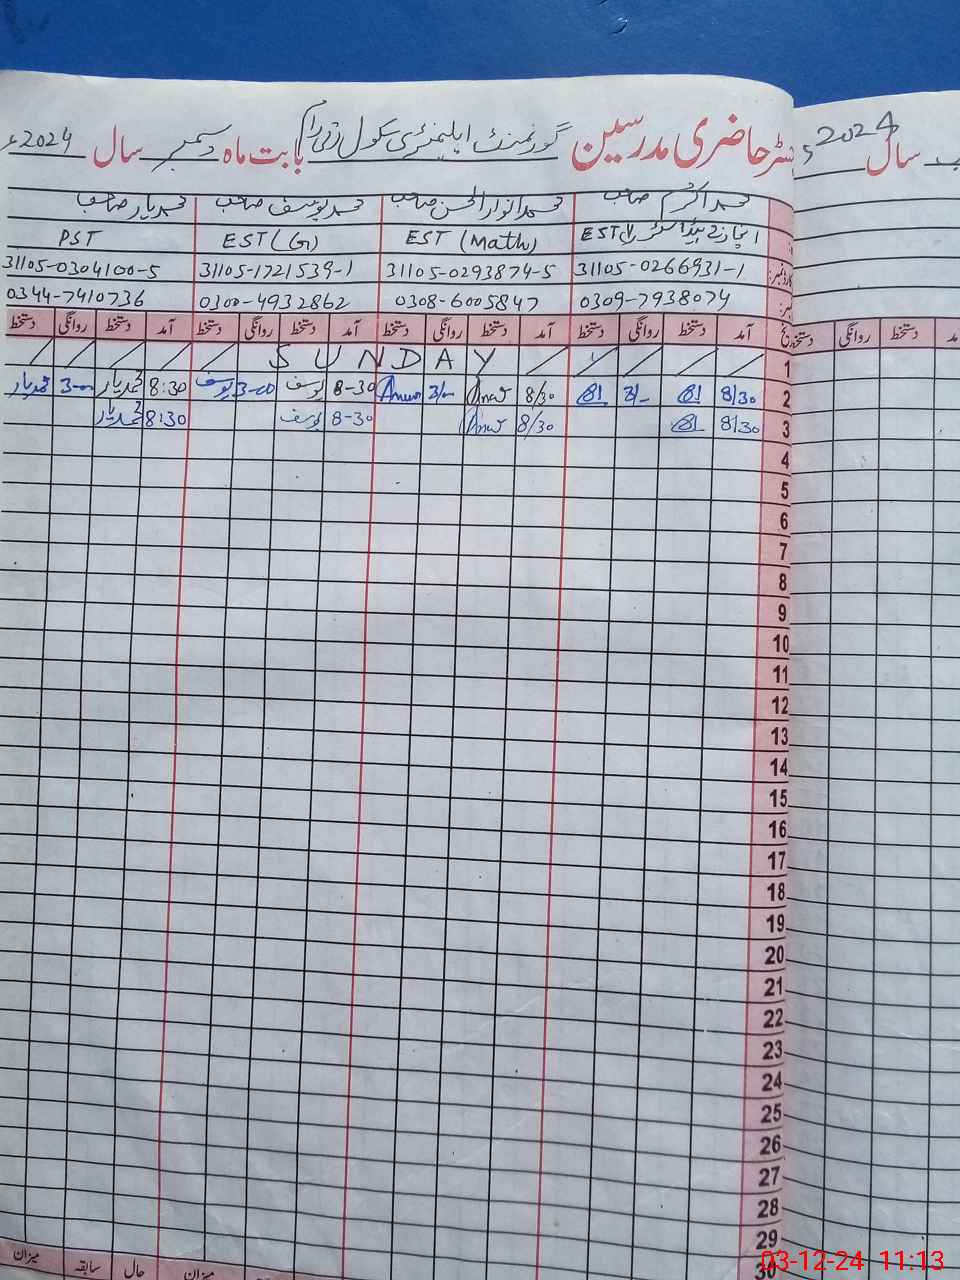 رجسٹر حاضری مدرسین گورنمنٹ ایلیمنٹری سکول بابت ماہ دسمبر سال 2024ء
سال 2024ء
محمد اکرم صاحب محمد انوار الحسن صاحب محمد یوسف صاحب محمد یار صاحب
انچارج ہیڈ ماسٹر EST EST (Math) EST (G) PST
31105-0266931-1 31105-0293874-5 31105-1721539-1 31105-0304100-5
0309-7938074 0308-6005847 0300-4932862 0344-7410736
آمد دستخط روانگی دستخط آمد دستخط روانگی دستخط آمد دستخط روانگی دستخط آمد دستخط روانگی دستخط
آمد دستخط روانگی دستخط
1 SUNDAY
2 8/30 3/- 8/30 Anwar 3/- Anwar 8-30 یوسف 3-00 یوسف 8:30 محمد یار 3-00 محمد یار
3 8/30 8/30 Anwar 8-30 یوسف 8:30 محمد یار
4
5
6
7
8
9
10
11
12
13
14
15
16
17
18
19
20
21
22
23
24
25
26
27
28
29
30
میزان حال سابقہ میزان
03-12-24 11:13